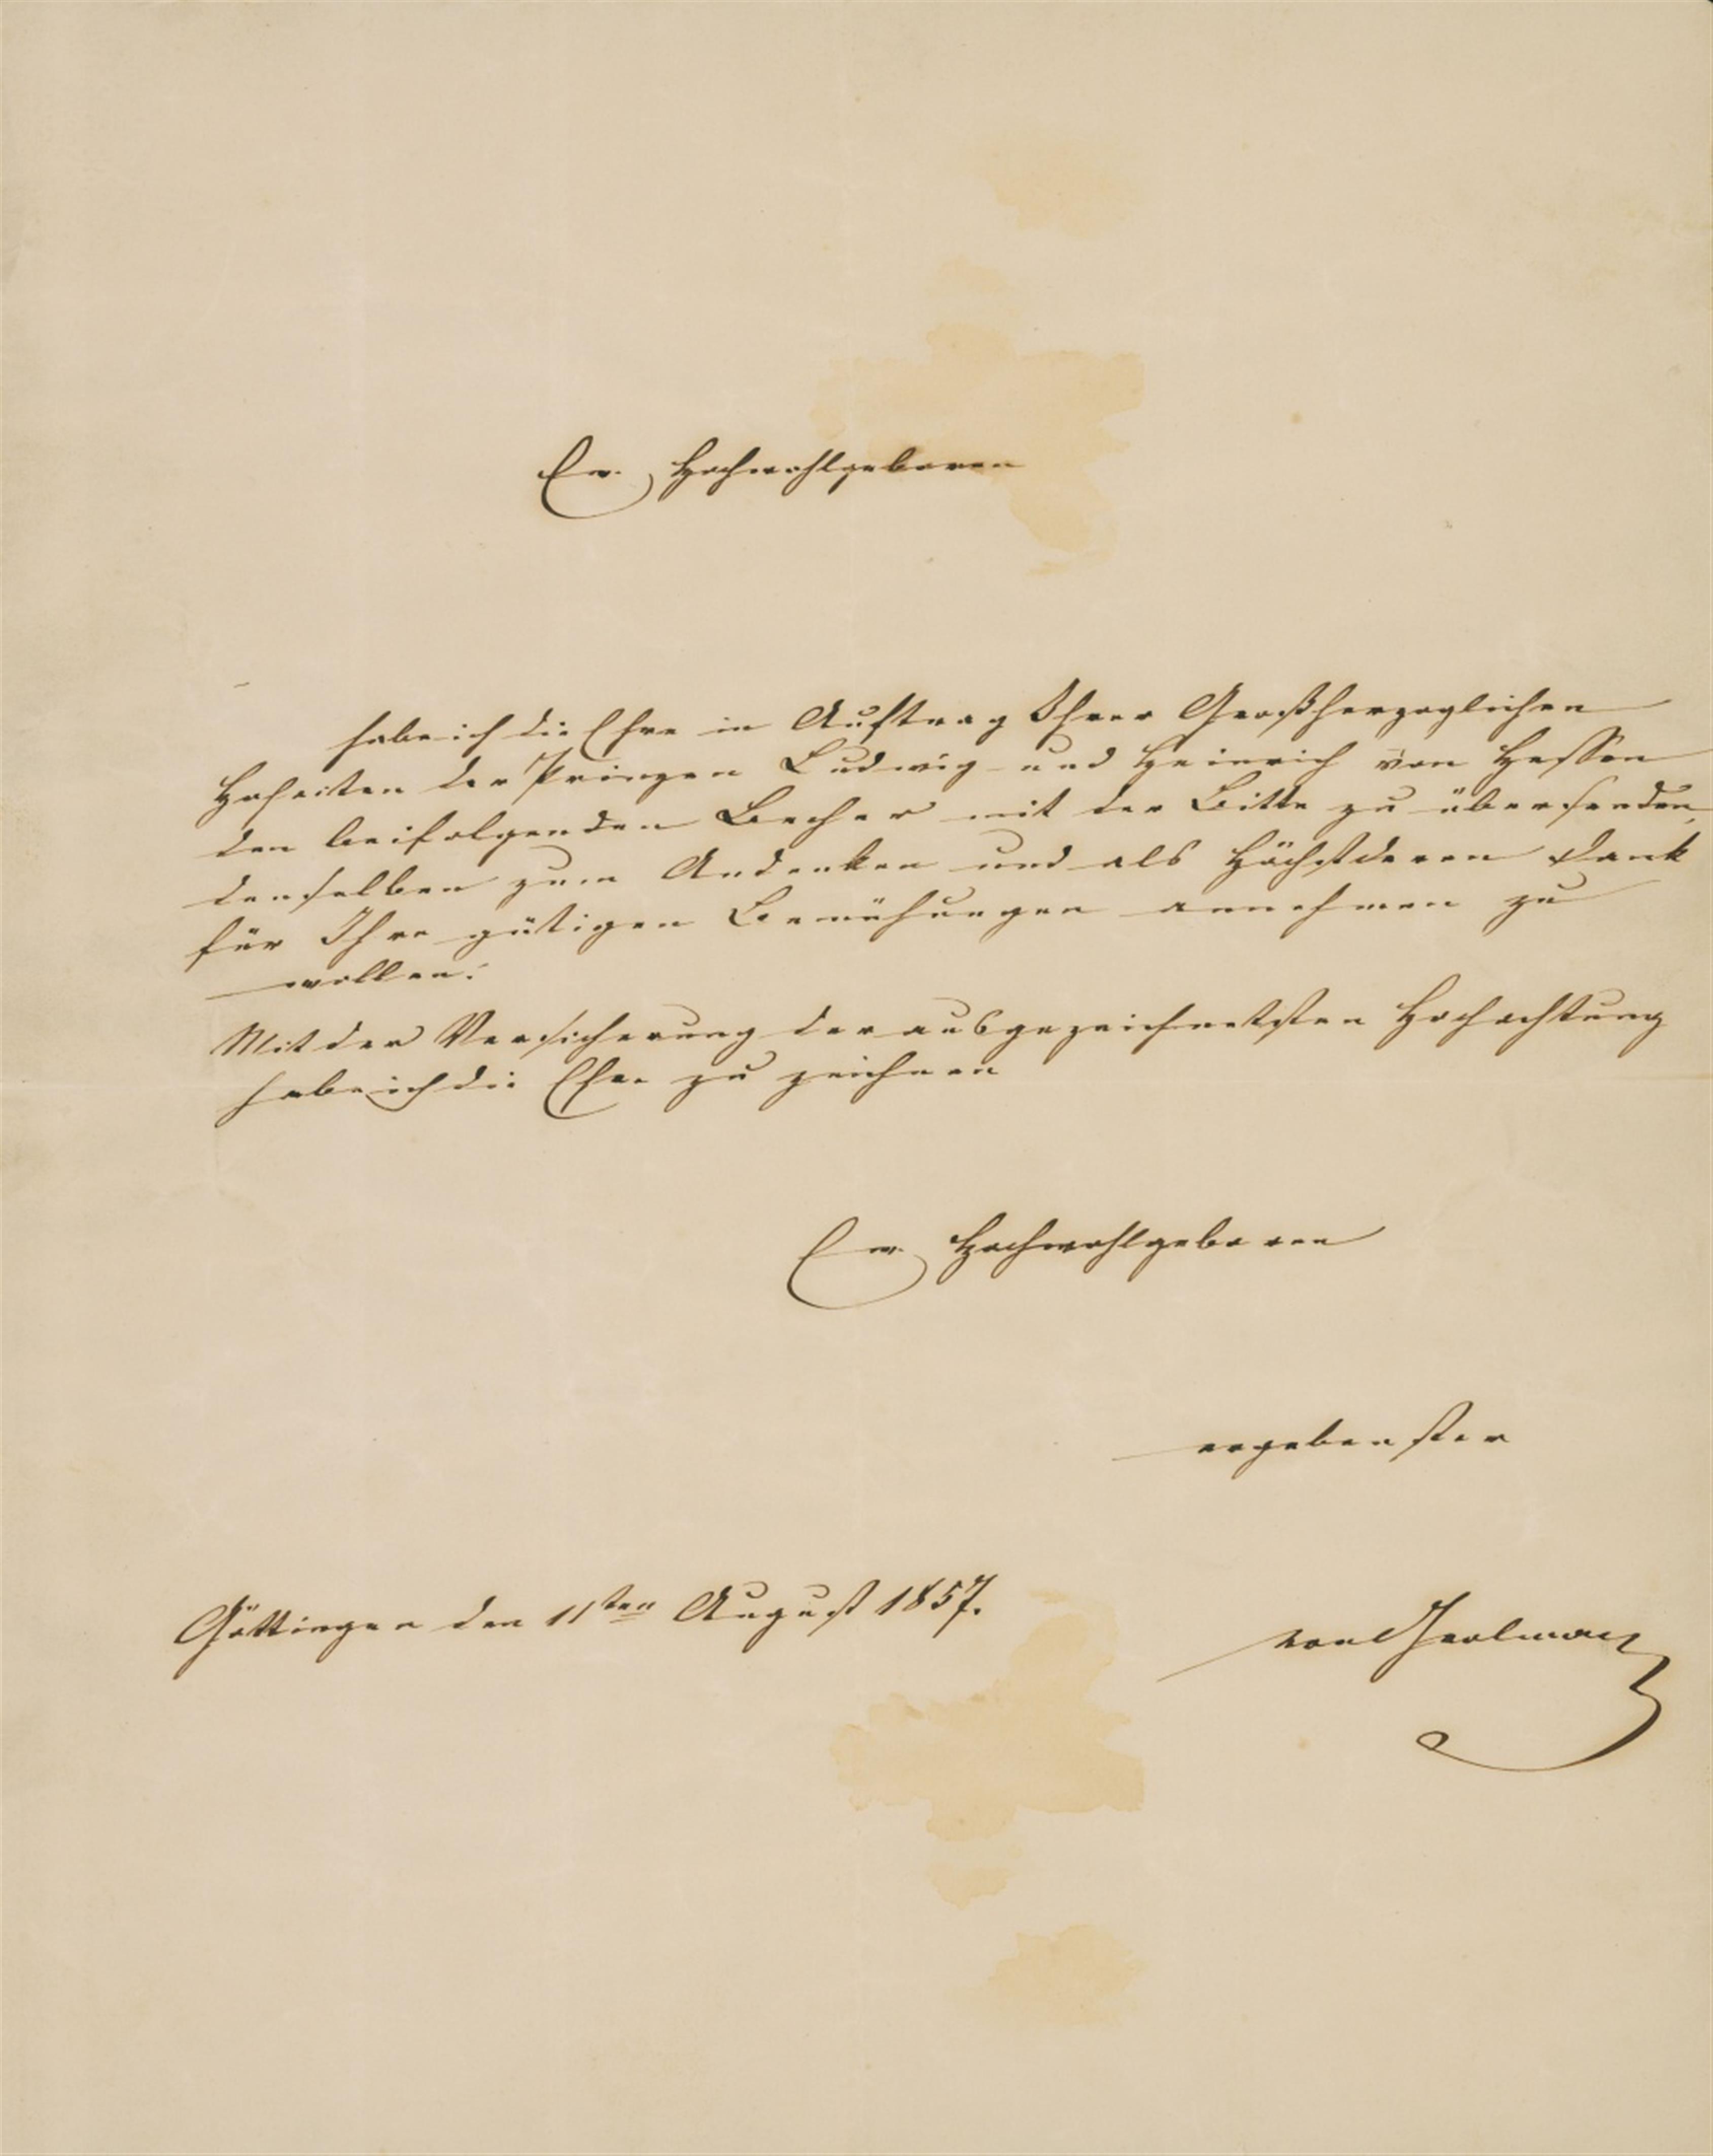 Ew. Hochwohlgeboren
habe ich die Ehre im Auftrag Ihrer Großherzoglichen
Hoheiten der Prinzen Ludwig und Heinrich von Hessen
den beifolgenden Becher mit der Bitte zu übersenden,
denselben zum Andenken und als Höchstderen Dank
für Ihre gütigen Bemühungen annehmen zu
wollen.
Mit der Versicherung der ausgezeichnetsten Hochachtung
habe ich die Ehre zu zeichnen
Ew. Hochwohlgeboren
ergebenster
Göttingen den 11ten August 1857.
von